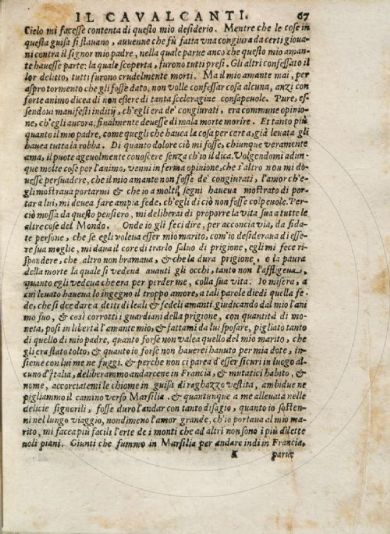 IL CAVALCANTI. 67
Cielo mi facesse contenta di questo mio desiderio. Mentre che le cose in
questa guisa si stauano, auuenne che fù fatta vna congiura da certi gioua-
ni contra il signor mio padre, nella quale parue anco che questo mio aman-
te hauesse parte: la quale scoperta, furono tutti presi. Gli altri confessato il
lor delitto, tutti furono crudelmente morti. Ma il mio amante mai, per
aspro tormento che gli fosse dato, non volle confessar cosa alcuna, anzi con
forte animo dicea di non essere di tanta sceleragine consapeuole. Pure, es-
sendoui manifesti inditij, ch'egli era de' congiurati, era commune opinio-
ne, ch'egli ancora, finalmente douesse di mala morte morire. Et tanto più
quanto il mio padre, come quegli che hauea la cosa per certa, già leuata gli
hauea tutta la robba. Di quanto dolore ciò mi fosse, chiunque veramente
ama, il puote ageuolmente conoscere senza ch'io il dica. Volgendomi adun-
que molte cose per l'animo, venni in ferma opinione, che s'altro non mi do-
uesse persuadere, che il mio amante non fosse de' congiurati, l'amor ch'e-
gli mostraua portarmi & che io a molti segni haueua mostrato di por-
tar a lui, mi deuea fare ampia fede, ch'egli di ciò non fosse colpeuole. Per-
ciò mossa da questo pensiero, mi deliberai di proporre la vita sua a tutte le
altre cose del Mondo. Onde io gli feci dire, per acconcia via, da fida-
te persone, che se egli voleua esser mio marito, com'io desideraua di esse-
re sua moglie, mi daua il core di trarlo saluo di prigione, egli mi fece ri-
spondere, che altro non bramaua, & che la dura prigione, o la paura
della morte la quale si vedeua auanti gli occhi, tanto non l'affligeua,
quanto egli vedeua che era per perderme, colla sua vita. Io misera, a
cui leuato haueua lo ingegno il troppo amore, a tali parole diedi quella fe-
de, che si dee dare a detti di leali & fedeli amanti, giudicando dal mio l'ani
mo suo, & così corrotti i guardiani della prigione, con quantità di mo-
neta, posi in libertà l'amante mio; & fattami da lui sposare, pigliato tanto
di quello di mio padre, quanto forse non valea quello del mio marito, che
gli era stato tolto, & quanto io forse non hauerei hauuto per mia dote, in-
sieme con lui me ne fuggi. & perche non ci parea d'esser sicuri in luogo al-
cuno d'Italia, deliberammo andarcene in Francia, & mutati ci habito, &
nome, accorciatemi le chiome in guisa di raghazzo vestita, ambidue ne
pigliammo il camino verso Marsilia. & quantunque a me alleuata nelle
delicie signorili, fosse duro l'andar con tanto disagio, quanto io sosten-
ni nel lungo viaggio, nondimeno l'amor grande, ch'io portaua al mio ma-
rito, mi facea più facili l'erte de i monti che ad altri non sono i più dilette
uoli piani. Giunti che fummo in Marsilia per andare indi in Francia,
K parue